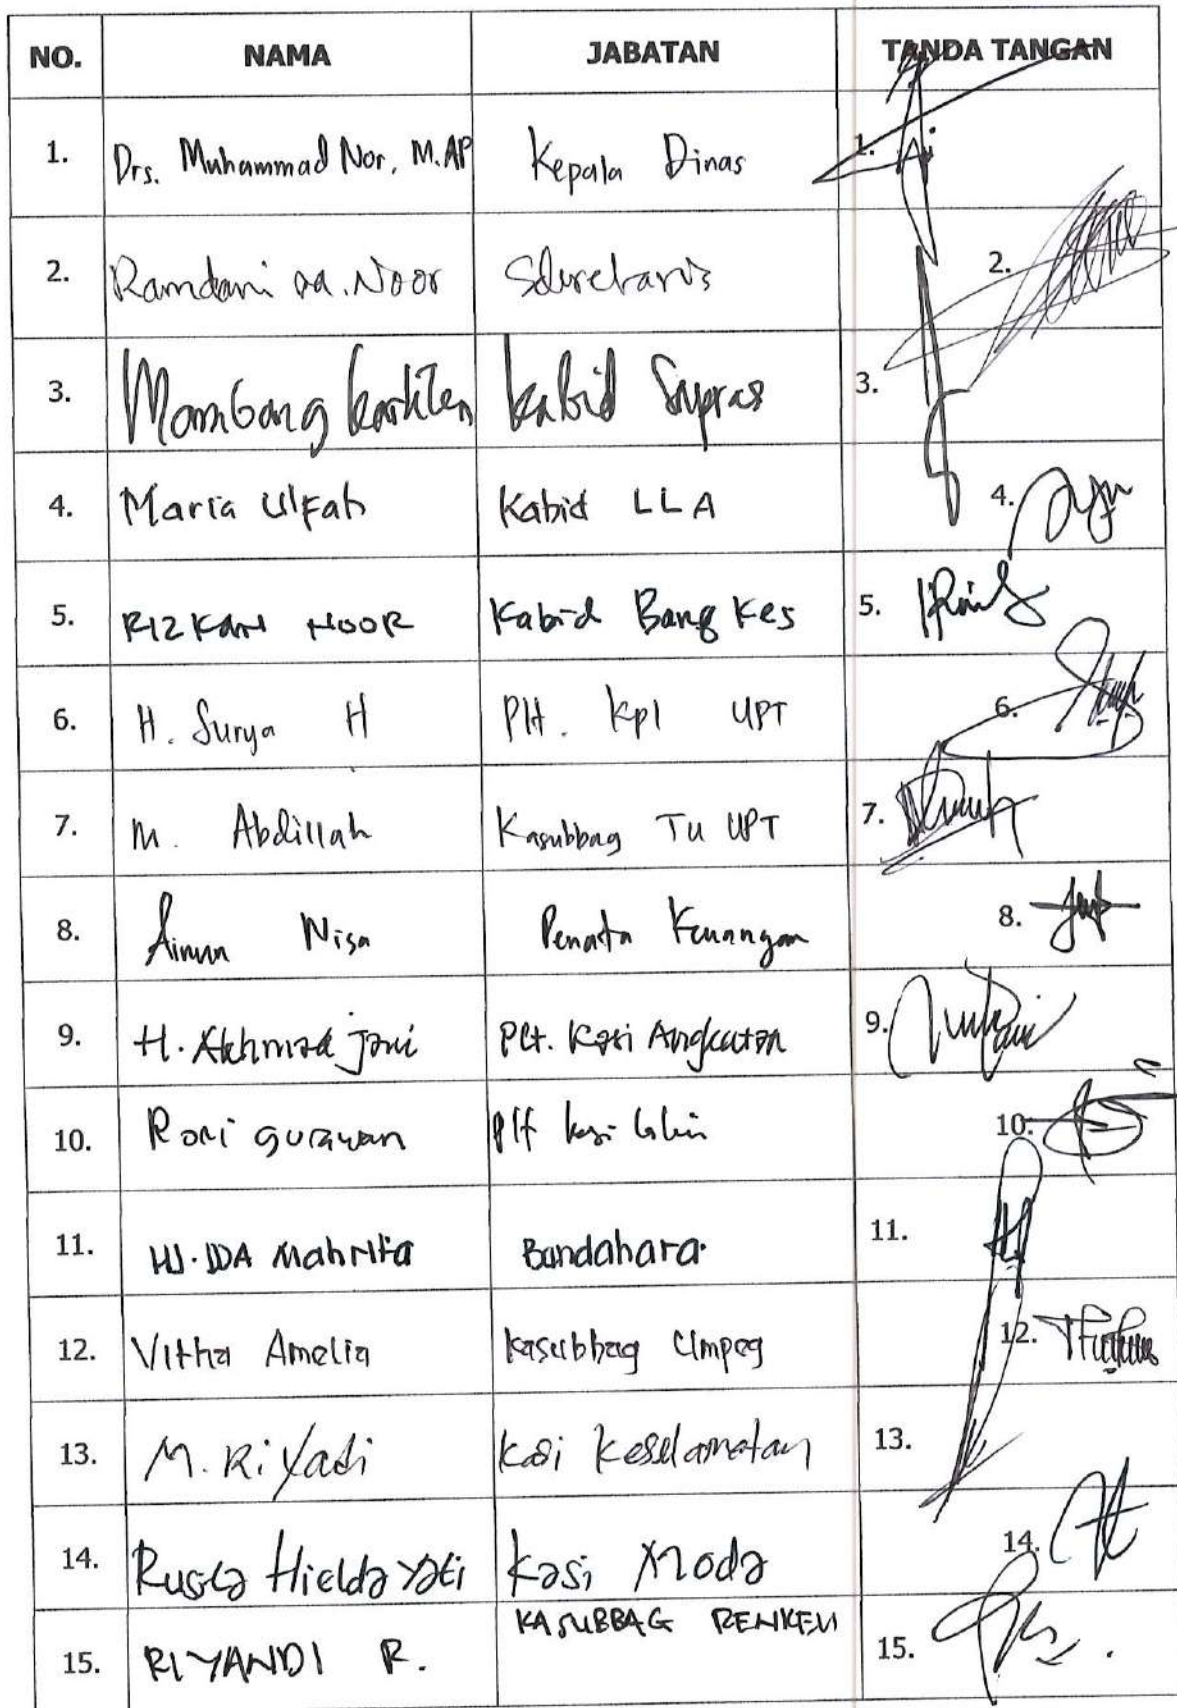 NO. NAMA JABATAN TANDA TANGAN
1. Drs. Muhammad Nor, M.AP Kepala Dinas 1.
2. Ramdani M. Noor Sekretaris 2.
3. Mambang Kabid Sapras 3.
4. Maria Ulfah Kabid LLA 4.
5. RIZKAN NOOR Kabid Bang Kes 5.
6. H. Surya H PH. Kpl UPT 6.
7. M. Abdillah Kasubbag TU UPT 7.
8. Ainun Nisa Penata Keuangan 8.
9. H. Akhmad Jani Plt. Kasi Angkutan 9.
10. Roni gunawan Plt kasi 10.
11. HJ. IDA Mahrita Bandahara 11.
12. Vitha Amelia Kasubbag Umpeg 12.
13. M. Riyadi Kasi Keselamatan 13.
14. Kasi Moda 14.
15. RIYANDI R. KASUBBAG RENKEU 15.